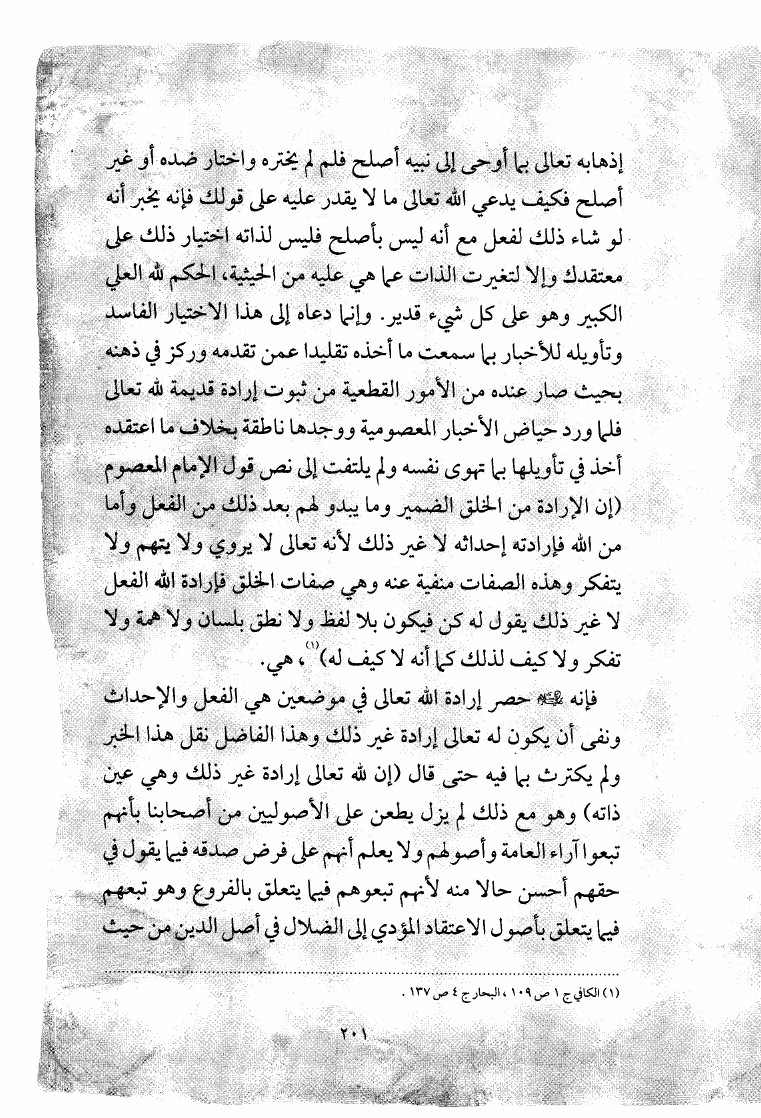 إذهابه تعالى بما أوحى إلى نبيه أصلح فلم لم يختره واختار ضده أو غير
أصلح فكيف يدعي الله تعالى ما لا يقدر عليه على قولك فإنه يخبر أنه
لو شاء ذلك لفعل مع أنه ليس بأصلح فليس لذاته اختيار ذلك على
معتقدك وإلا لتغيرت الذات عما هي عليه من الحيثية، الحكم لله العلي
الكبير وهو على كل شيء قدير. وإنما دعاه إلى هذا الاختيار الفاسد
وتأويله للأخبار بما سمعت ما أخذه تقليدا عمن تقدمه وركز في ذهنه
بحيث صار عنده من الأمور القطعية من ثبوت إرادة قديمة لله تعالى
فلما ورد حياض الأخبار المعصومية ووجدها ناطقة بخلاف ما اعتقده
أخذ في تأويلها بما تهوى نفسه ولم يلتفت إلى نص قول الإمام المعصوم
(إن الإرادة من الخلق الضمير وما يبدو لهم بعد ذلك من الفعل وأما
من الله فإرادته إحداثه لا غير ذلك لأنه تعالى لا يروي ولا يتهم ولا
يتفكر وهذه الصفات منفية عنه وهي صفات الخلق فإرادة الله الفعل
لا غير ذلك يقول له كن فيكون بلا لفظ ولا نطق بلسان ولا همة ولا
تفكر ولا كيف لذلك كما أنه لا كيف له)(١)، هي.
فإنه حصر إرادة الله تعالى في موضعين هي الفعل والإحداث
ونفى أن يكون له تعالى إرادة غير ذلك وهذا الفاضل نقل هذا الخبر
ولم يكترث بما فيه حتى قال (إن لله تعالى إرادة غير ذلك وهي عين
ذاته) وهو مع ذلك لم يزل يطعن على الأصوليين من أصحابنا بأنهم
تبعوا آراء العامة وأصولهم ولا يعلم أنهم على فرض صدقه فيما يقول في
حقهم أحسن حالا منه لأنهم تبعوهم فيما يتعلق بالفروع وهو تبعهم
فيما يتعلق بأصول الاعتقاد المؤدي إلى الضلال في أصل الدين من حيث
(١) الكافي ج ١ ص ١٠٩، البحار ج ٤ ص ١٣٧.
٢٠١